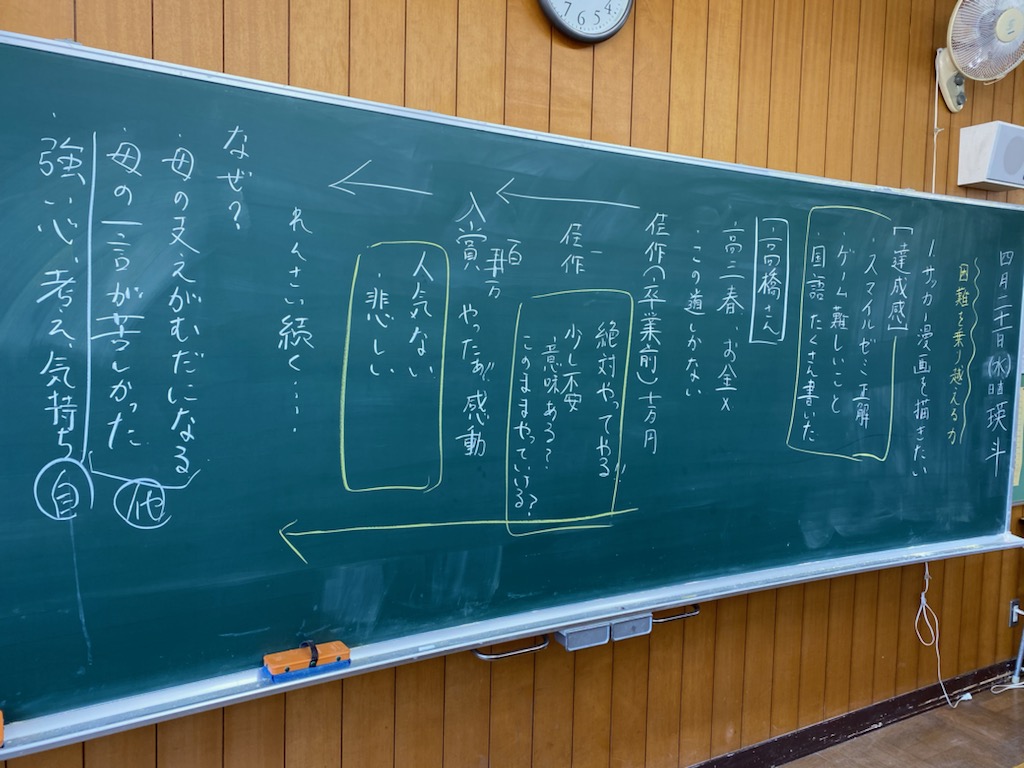 四月二十一日(水)晴 瑛斗
困難を乗り越える力
1. サッカー漫画を描きたい
[達成感]
・スマイルゼミ正解
・ゲーム難しいこと
・国語 たくさん書いた
高橋さん
・高三春、お金×
・この道しかない
佳作(卒業前)十万円
絶対やってやる!!
少し不安
意味ある?
このままやっていける?
佳作
入賞
やったぁ 感動
人気ない
・悲しい
れんさい続く・・・・
なぜ?
・母の支えがむだになる
・母の一言が苦しかった
他
・強い心、考え、気持ち
自
7 6 5 4